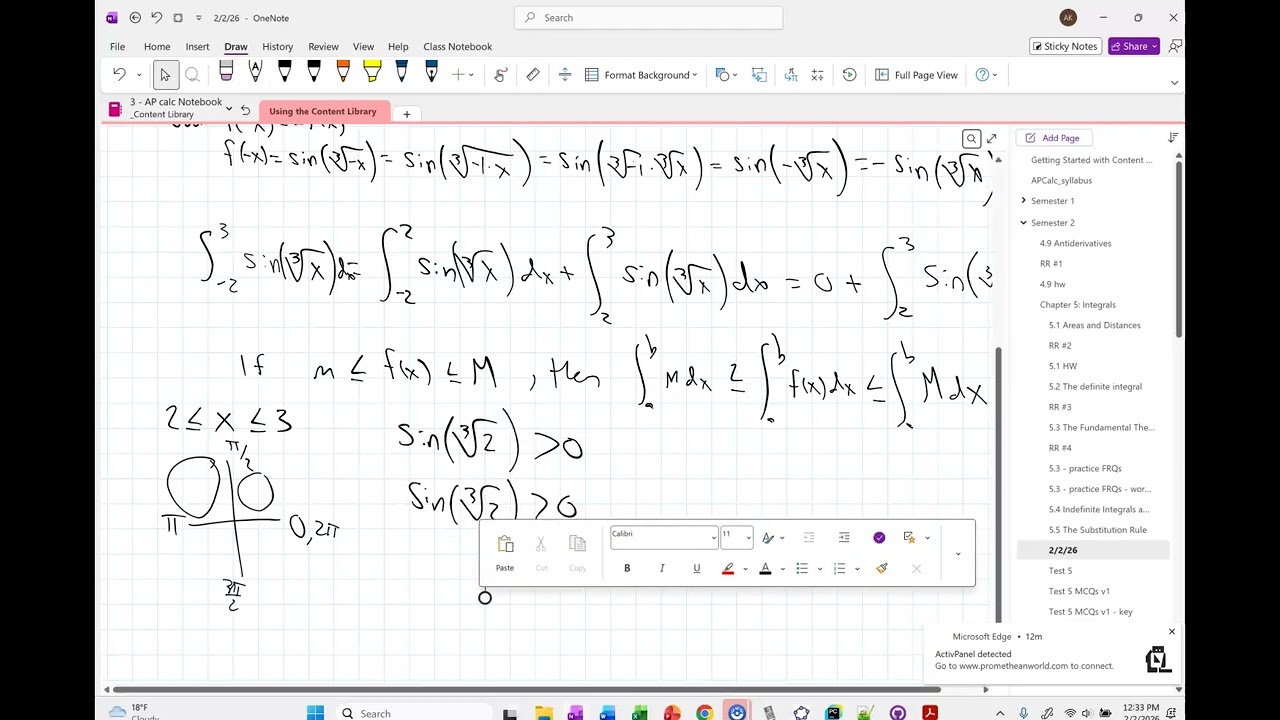 2/2/26 - OneNote
Search
AK
File Home Insert Draw History Review View Help Class Notebook
Sticky Notes
Share
Format Background
Full Page View
3 - AP calc Notebook
_Content Library
Using the Content Library
Add Page
f(-x) = sin(∛-x) = sin(∛-1·x) = sin(∛-1·∛x) = sin(-∛x) = - sin(∛x)
∫₋₂³ sin(∛x)dx = ∫₋₂² sin(∛x)dx + ∫₂³ sin(∛x)dx = 0 + ∫₂³ sin(∛
If m ≤ f(x) ≤ M, then ∫ₐᵇ m dx ≤ ∫ₐᵇ f(x)dx ≤ ∫ₐᵇ M dx
2 ≤ x ≤ 3
sin(∛2) > 0
π/2
sin(∛2) > 0
π
0, 2π
3π/2
Calibri
11
Paste Cut Copy
B I U A
Getting Started with Content ...
APCalc_syllabus
Semester 1
Semester 2
4.9 Antiderivatives
RR #1
4.9 hw
Chapter 5: Integrals
5.1 Areas and Distances
RR #2
5.1 HW
5.2 The definite integral
RR #3
5.3 The Fundamental The...
RR #4
5.3 - practice FRQs
5.3 - practice FRQs - wor...
5.4 Indefinite Integrals a...
5.5 The Substitution Rule
2/2/26
Test 5
Test 5 MCQs v1
Test 5 MCQs v1 - key
Microsoft Edge • 12m
ActivPanel detected
Go to www.prometheanworld.com to connect.
18°F
Cloudy
Search
12:33 PM
2/2/2026